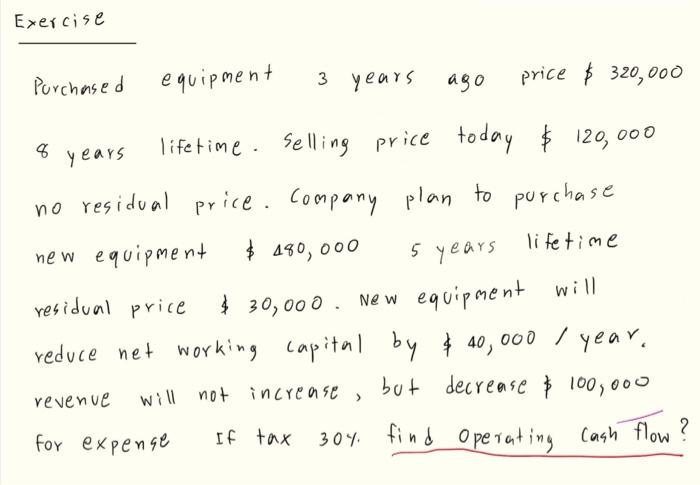 Exercise
Purchased equipment 3 years ago price $ 320,000
8 years lifetime. Selling price today $ 120,000
no residual price. Company plan to purchase
new equipment $ 480,000 5 years lifetime
residual price $ 30,000. New equipment will
reduce net working capital by $ 40,000 / year.
revenue will not increase, but decrease $ 100,000
for expense If tax 30%. find operating Cash flow?